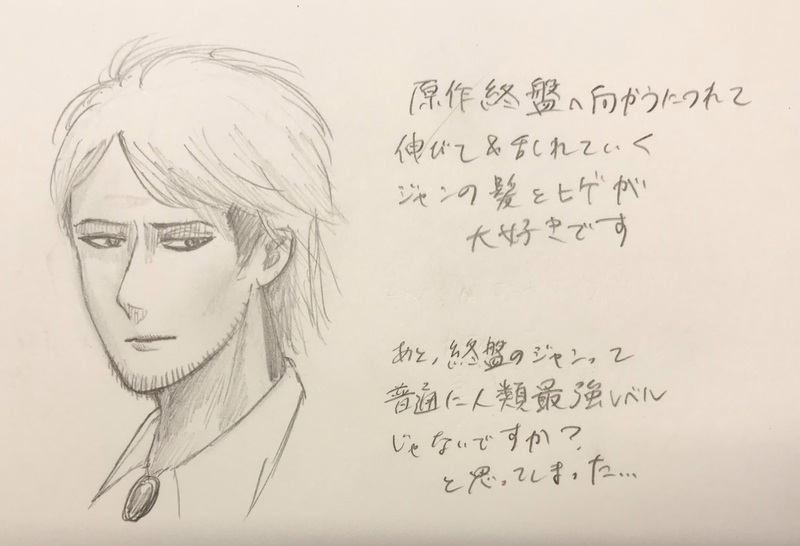 原作終盤へ向かうにつれて
伸びて&乱れていく
ジャンの髪とヒゲが
大好きです
あと、終盤のジャンって
普通に人類最強レベル
じゃないですか?
と思ってしまった…